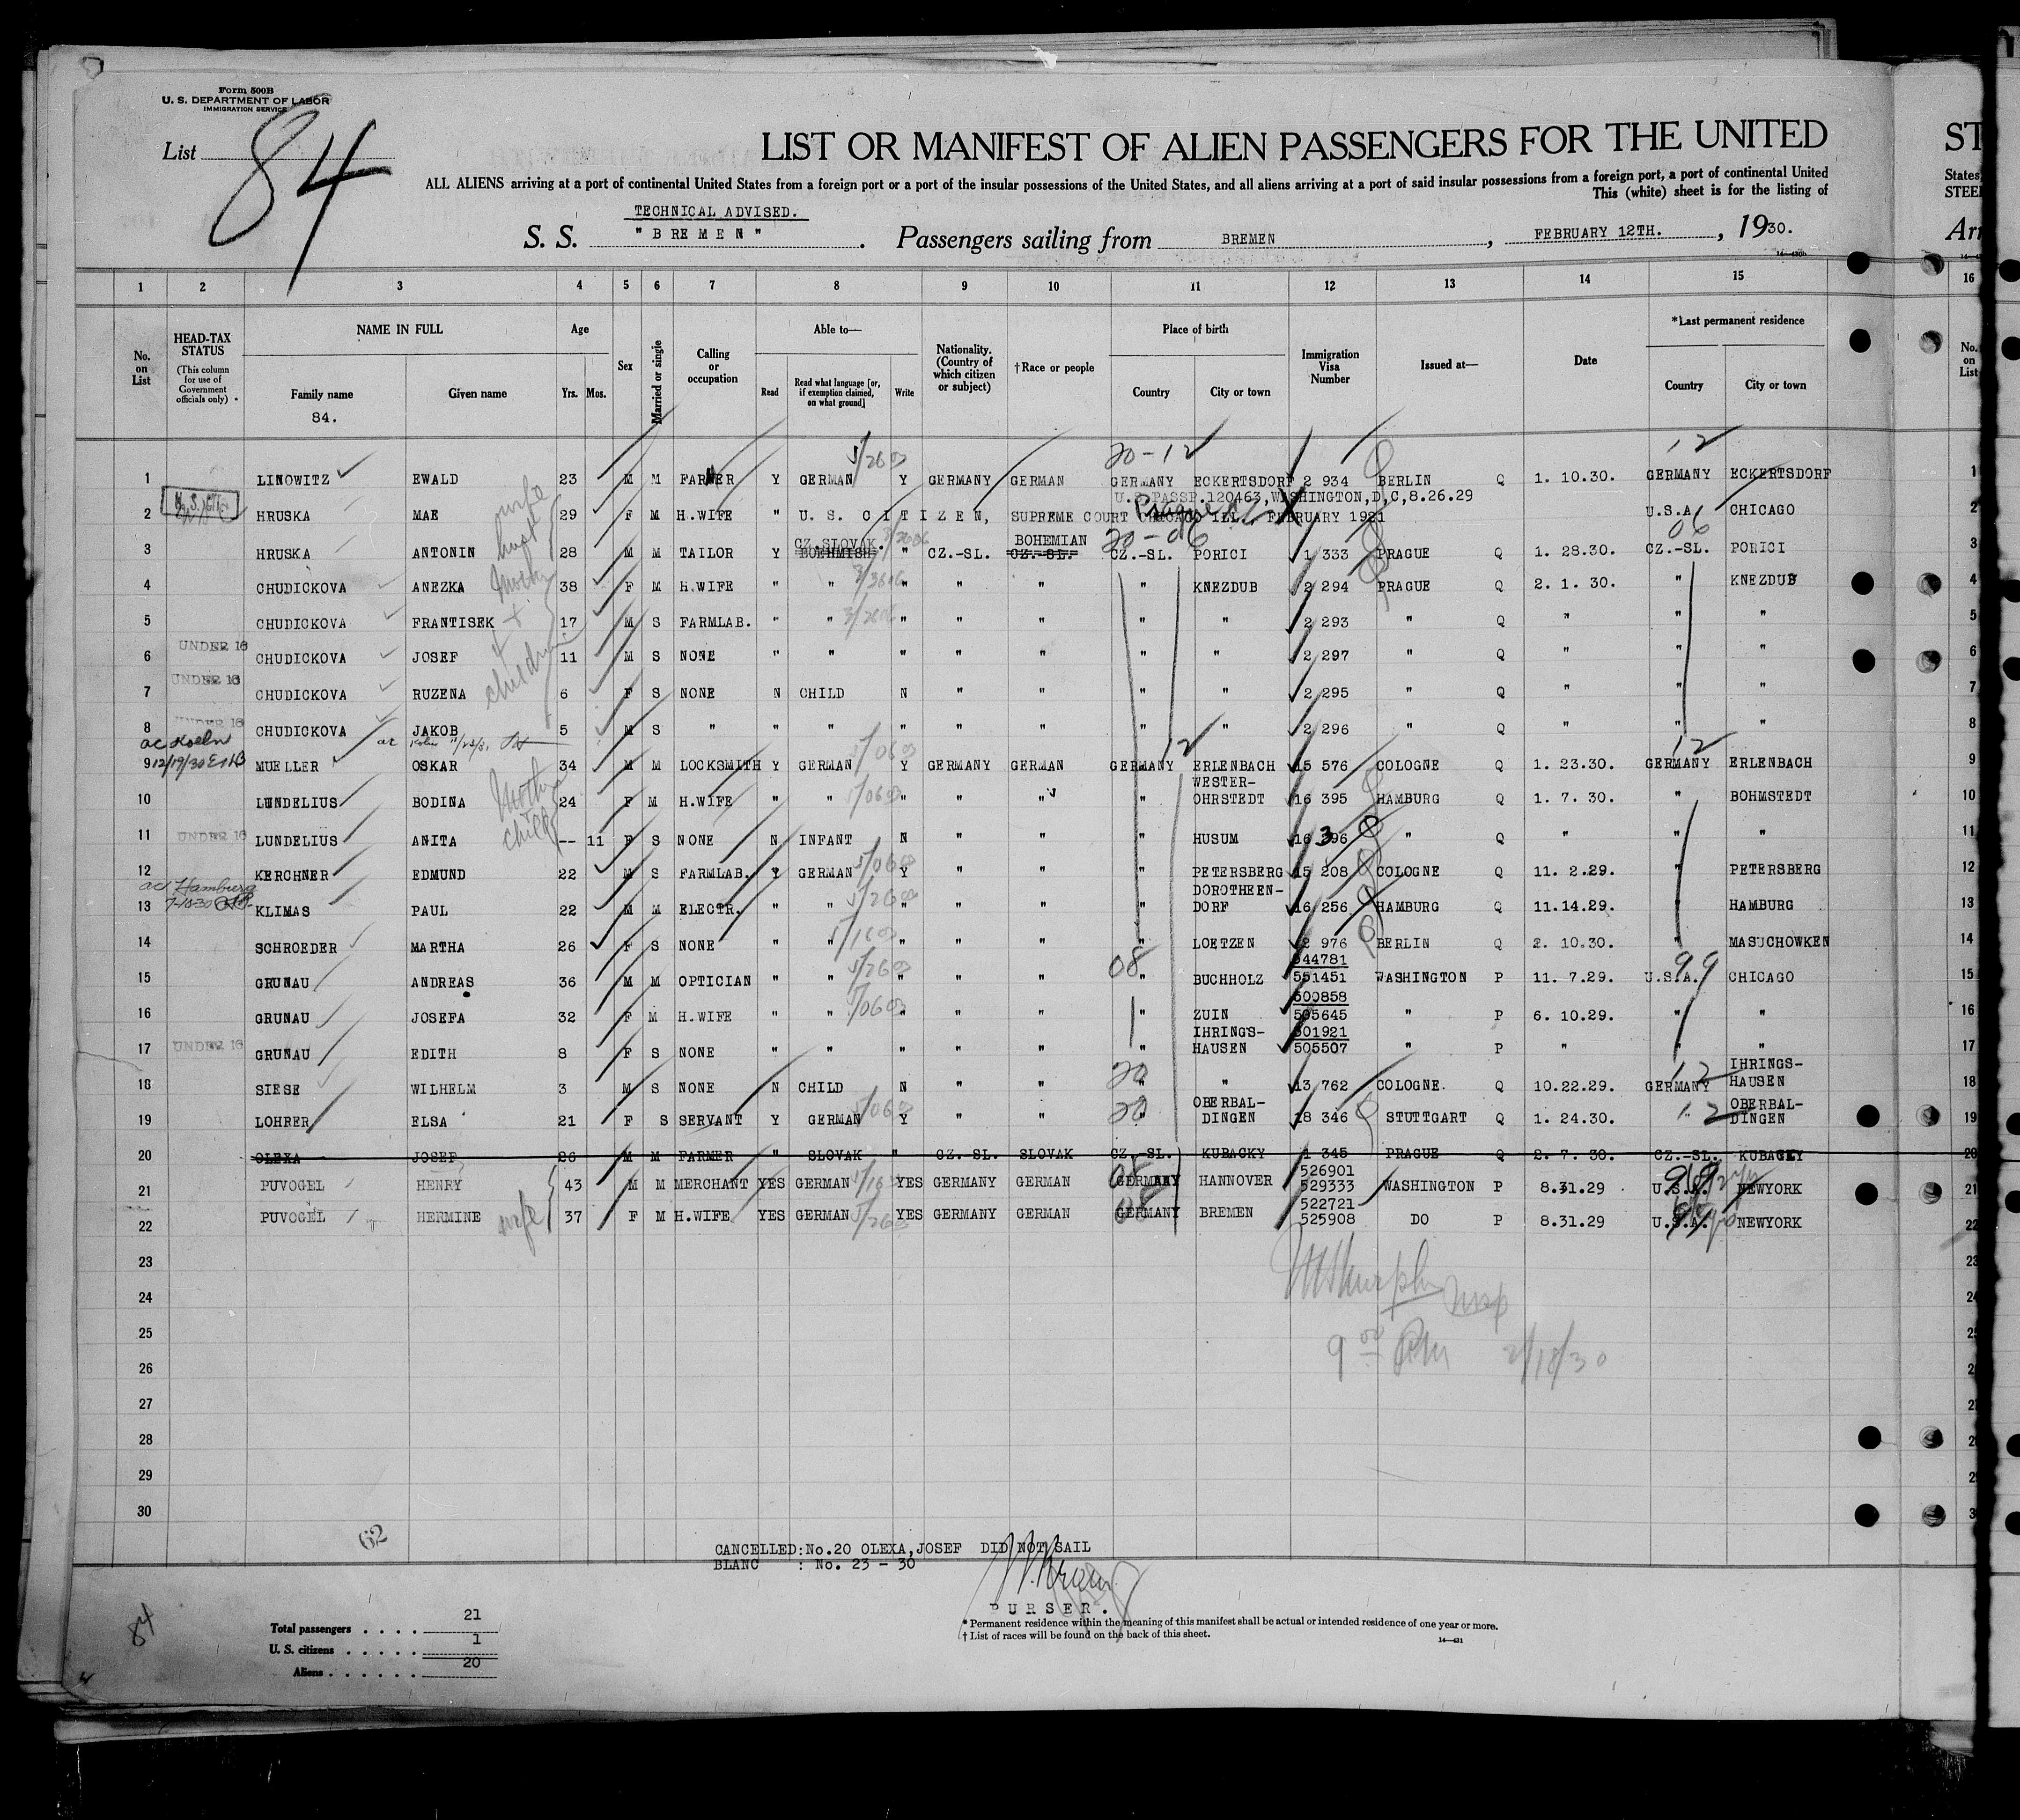 Form 500B
U. S. DEPARTMENT OF LABOR
IMMIGRATION SERVICE
List 84
LIST OR MANIFEST OF ALIEN PASSENGERS FOR THE UNITED
ST
ALL ALIENS arriving at a port of continental United States from a foreign port or a port of the insular possessions of the United States, and all aliens arriving at a port of said insular possessions from a foreign port, a port of continental United
States,
This (white) sheet is for the listing of
STEE
TECHNICAL ADVISED.
S. S. "BREMEN". Passengers sailing from BREMEN, FEBRUARY 12TH., 1930.
Arr
1 2 3 4 5 6 7 8 9 10 11 12 13 14 15 16
No. on List
HEAD-TAX STATUS (This column for use of Government officials only)
NAME IN FULL Family name Given name
Age Yrs. Mos.
Sex
Married or single
Calling or occupation
Able to— Read Read what language [or, if exemption claimed, on what ground] Write
Nationality. (Country of which citizen or subject)
†Race or people
Place of birth Country City or town
Immigration Visa Number
Issued at—
Date
*Last permanent residence Country City or town
No. on List
84.
5/2603 20-12 12
1 LINOWITZ EWALD 23 M M FARMER Y GERMAN Y GERMANY GERMAN GERMANY ECKERTSDORF 2 934 BERLIN Q 1. 10.30. GERMANY ECKERTSDORF 1
U.S.PASSP.120463,WASHINGTON,D,C,8.26.29
2 HRUSKA MAE wife 29 F M H.WIFE " U. S. CITIZEN, SUPREME COURT CHICAGO ILL. FEBRUARY 1921 Prague U.S.A. CHICAGO 2
CZ.SLOVAK. BOHEMIAN 20-06 06
3 HRUSKA ANTONIN husb 28 M M TAILOR Y BOEHMISH " CZ.-SL. CZ.-SL. CZ.-SL. PORICI 1 333 PRAGUE Q 1. 28.30. CZ.-SL. PORICI 3
4 CHUDICKOVA ANEZKA Mother 38 F M H.WIFE " " " " " " KNEZDUB 2 294 PRAGUE Q 2. 1. 30. " KNEZDUB 4
5 CHUDICKOVA FRANTISEK + 17 M S FARMLAB. " " " " " " " 2 293 " Q " " " 5
UNDER 16
6 CHUDICKOVA JOSEF 11 M S NONE " " " " " " " 2 297 " Q " " " 6
UNDER 16
7 CHUDICKOVA RUZENA children 6 F S NONE N CHILD N " " " " 2 295 " Q " " " 7
UNDER 16
8 CHUDICKOVA JAKOB 5 M S " " " " " " " " 2 296 " Q " " " 8
ac Koeln 12/19/30
9 MUELLER OSKAR 34 M M LOCKSMITH Y GERMAN Y GERMANY GERMAN GERMANY ERLENBACH 15 576 COLOGNE Q 1. 23.30. GERMANY ERLENBACH 9
12 12
10 LUNDELIUS BODINA Mother 24 F M H.WIFE " " " " " " WESTER-OHRSTEDT 16 395 HAMBURG Q 1. 7. 30. " BOHMSTEDT 10
UNDER 16
11 LUNDELIUS ANITA child -- 11 F S NONE N INFANT N " " " HUSUM 16 396 " Q " " " 11
12 KERCHNER EDMUND 22 M S FARMLAB. Y GERMAN Y " " " PETERSBERG 15 208 COLOGNE Q 11. 2.29. " PETERSBERG 12
ac Hamburg 7-18-30
13 KLIMAS PAUL 22 M M ELECTR. " " " " " " DOROTHEEN-DORF 16 256 HAMBURG Q 11.14.29. " HAMBURG 13
14 SCHROEDER MARTHA 26 F S NONE " " " " " " LOETZEN 2 976 BERLIN Q 2. 10.30. " MASUCHOWKEN 14
544781 08 99
15 GRUNAU ANDREAS 36 M M OPTICIAN " " " " " " BUCHHOLZ 551451 WASHINGTON P 11. 7.29. U.S.A. CHICAGO 15
500858
16 GRUNAU JOSEFA 32 F M H.WIFE " " " " " " ZUIN 505645 " P 6. 10.29. " " 16
501921
UNDER 16
17 GRUNAU EDITH 8 F S NONE " " " " " " IHRINGS-HAUSEN 505507 " P " " " 17
20 12
18 SIESE WILHELM 3 M S NONE N CHILD N " " " " 13 762 COLOGNE. Q 10.22.29. GERMANY IHRINGS-HAUSEN 18
20 12
19 LOHRER ELSA 21 F S SERVANT Y GERMAN Y " " " OBERBAL-DINGEN 18 346 STUTTGART Q 1. 24.30. " OBERBAL-DINGEN 19
20 OLEXA JOSEF 26 M M FARMER " SLOVAK " CZ. SL. SLOVAK CZ.-SL. KUBACKY 1 345 PRAGUE Q 2. 7. 30. CZ.-SL. KUBACKY 20
526901 08
21 PUVOGEL HENRY 43 M M MERCHANT YES GERMAN YES GERMANY GERMAN GERMANY HANNOVER 529333 WASHINGTON P 8.31.29 U.S.A. NEWYORK 21
522721 08
22 PUVOGEL HERMINE wife 37 F M H.WIFE YES GERMAN YES GERMANY GERMAN GERMANY BREMEN 525908 DO P 8.31.29 U.S.A. NEWYORK 22
23
24
25
9 00 PM 2/18/30
26
27
28
29
30
62
CANCELLED:No.20 OLEXA,JOSEF DID NOT SAIL
BLANC : No. 23 - 30
PURSER.
84
Total passengers . . . . 21
U. S. citizens . . . . . 1
Aliens . . . . . . 20
* Permanent residence within the meaning of this manifest shall be actual or intended residence of one year or more.
† List of races will be found on the back of this sheet.
14—431